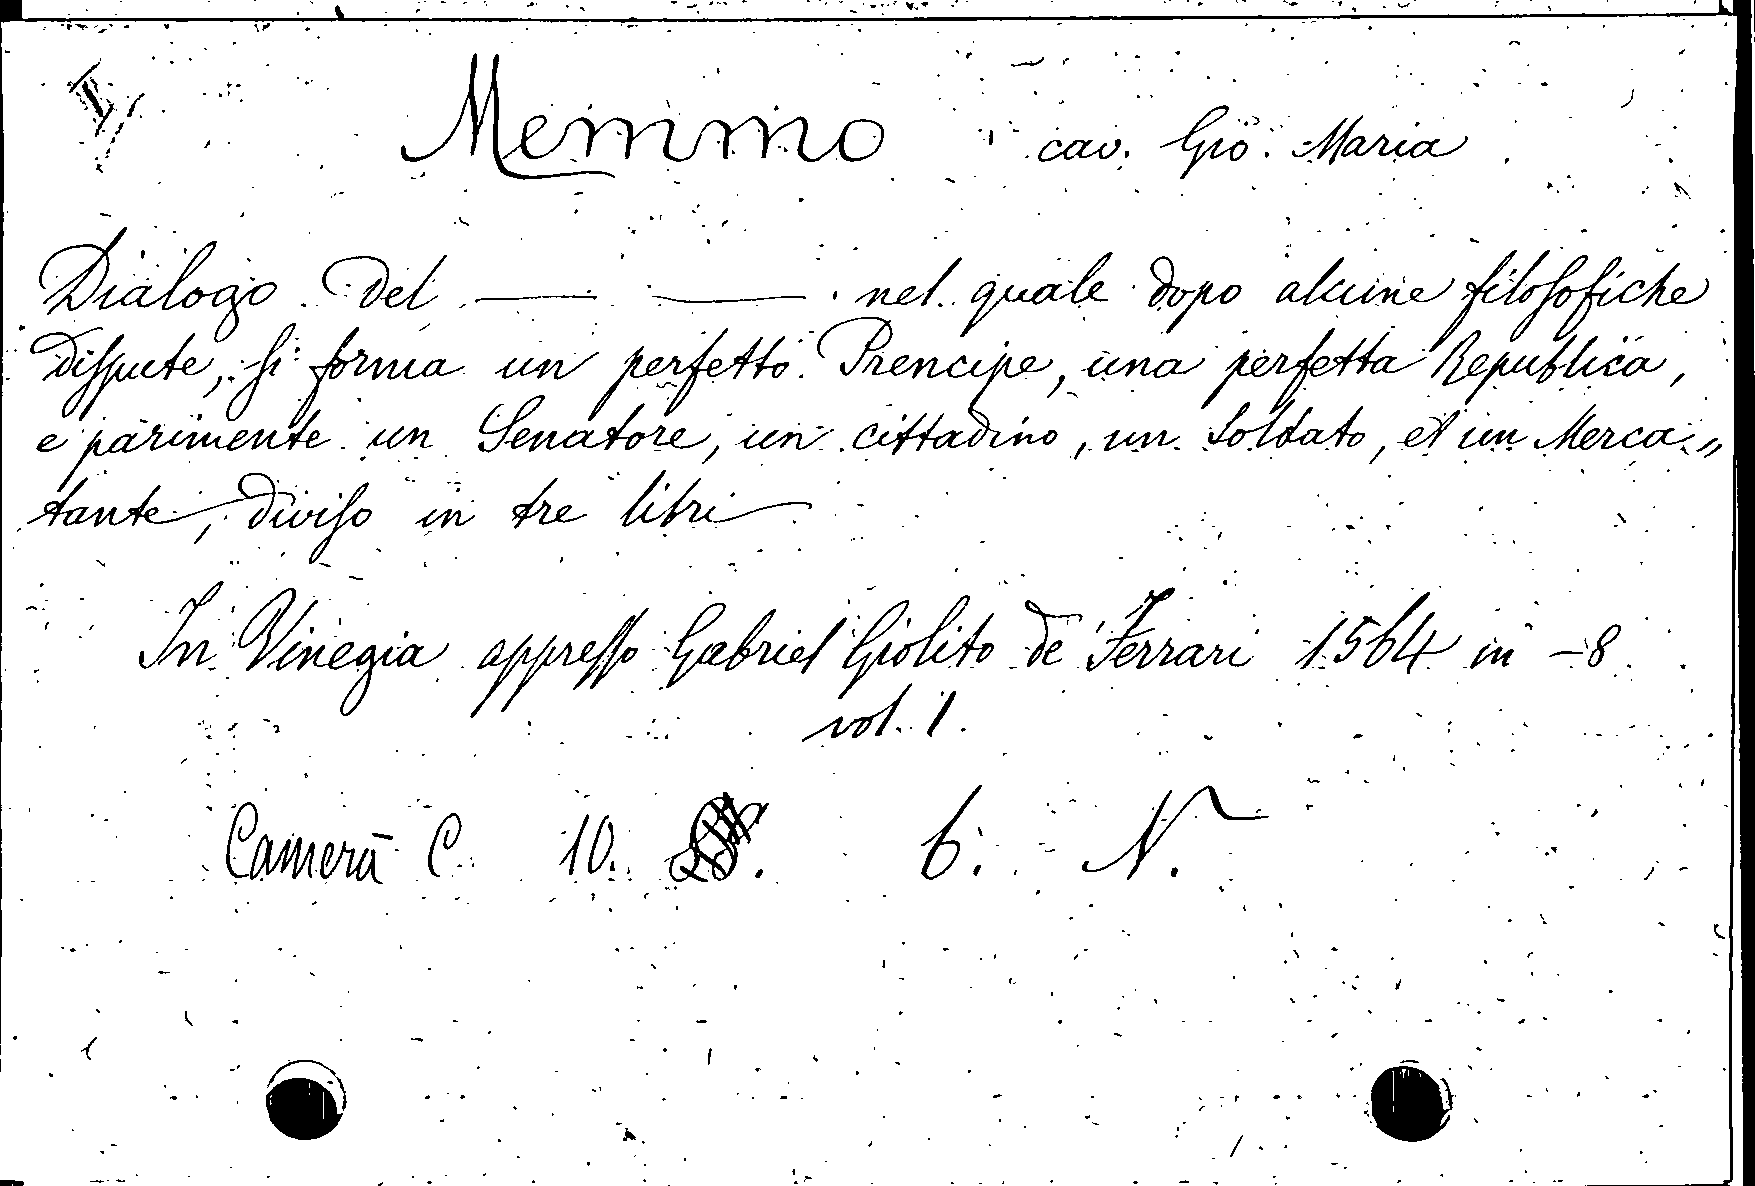 Memmo cav. Gio: Maria
Dialogo del —— —— nel quale dopo alcune filosofiche
dispute, si forma un perfetto Prencipe, una perfetta Republica,
e parimente un Senatore, un cittadino, un soldato, et un Merca„
tante, diviso in tre libri
In Vinegia appresso Gabriel Giolito de' Ferrari 1564 in -8
vol. 1.
Camera C. 10. 6. N.